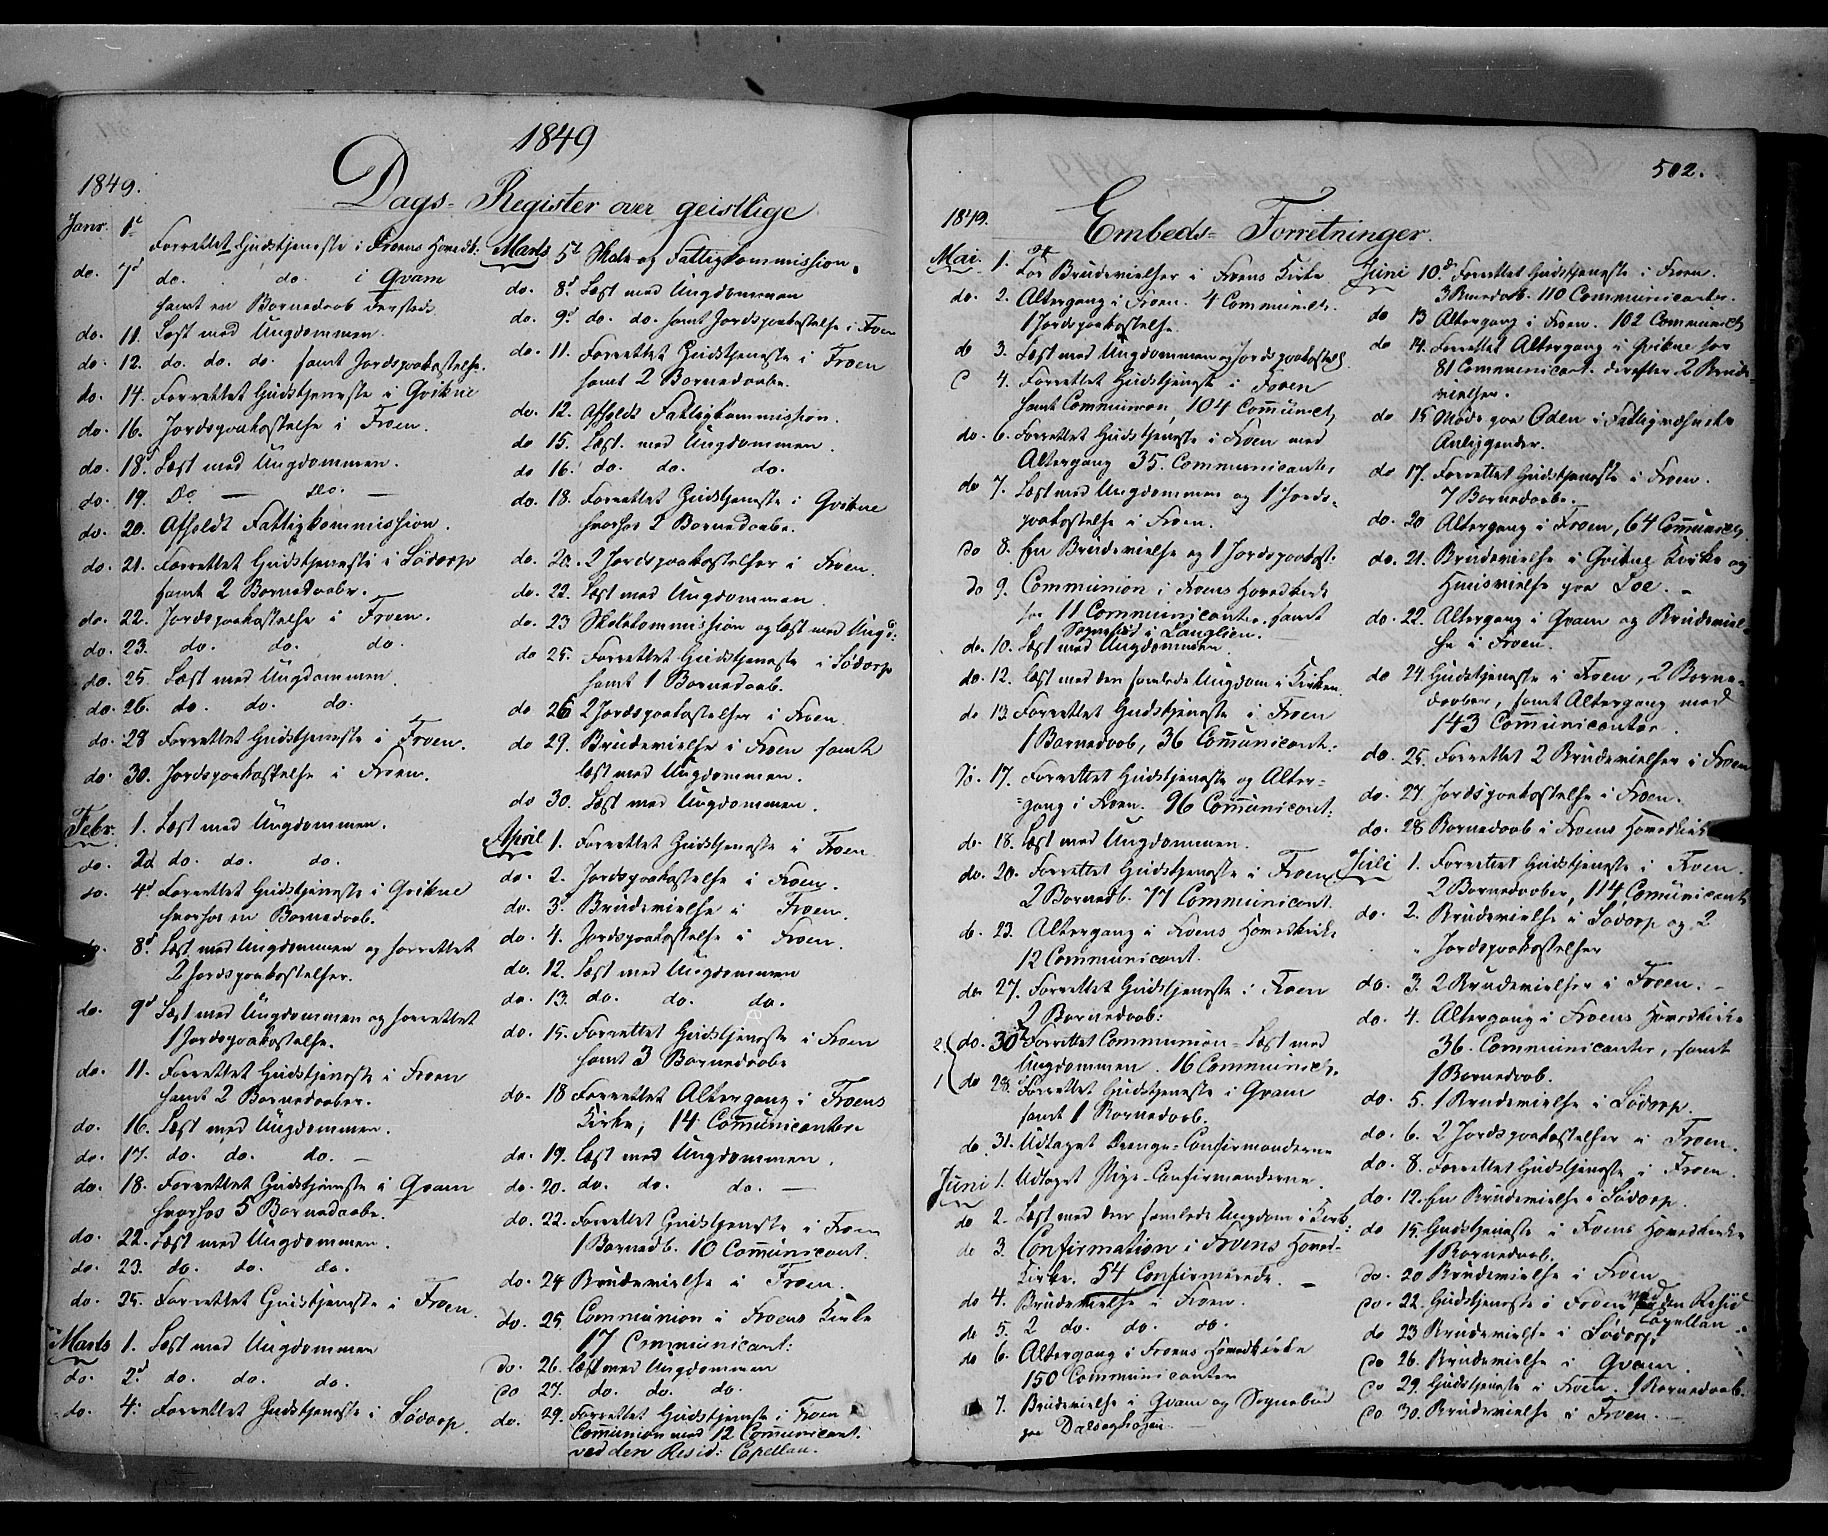 1849
Dags-Register over geistlige
1849.
Janr. 1ste Forrettet Gudstjeneste i Froens Hovedk:
do. 7d do. do. i Qvam
samt en Barnedaab dersteds.
do. 11. Læst med Ungdommen.
do. 12. do. do. do samt Jordspaakastelse.
do. 14. Forrettet Gudstjeneste i Qvikne
do. 16. Jordspaakastelse i Froen.
do. 18d Læst med Ungdommen.
do. 19. Do. — Do. —
do. 20. Afholdt Fattigkommission.
do. 21. Forrettet Gudstjeneste i Sødorp
samt 2 Barnedaabe.
do. 22. Jordspaakastelse i Froen.
do. 23. do. do. do.
do. 25. Læst med Ungdommen.
do. 26. do. do. do.
do. 28 Forrettet Gudstjeneste i Froen.
do. 30. Jordspaakastelse i Froen.
Febr. 1. Læst med Ungdommen.
do. 2d do. do. do.
do. 4d Forrettet Gudstjeneste i Qvikne
hvorhos en Barnedaab.
do. 8d Læst med Ungdommen og forrettet
2 Jordspaakastelser.
do. 9d Læst med Ungdommen og forrettet
1 Jordspaakastelse.
do. 11. Forrettet Gudstjeneste i Froen
samt 2 Barnedaaber.
do. 16. Læst med Ungdommen.
do. 17. do. do. do. —
do. 18. Forrettet Gudstjeneste i Qvam
hvorhos 5 Barnedaabe.
do. 22. Læst med Ungdommen.
do. 23. do. do. do.
do. 25. Forrettet Gudstjeneste i Froen.
Marts 1. Læst med Ungdommen
do. 2d do. do. do.
do. 4. Forrettet Gudstjeneste i Sødorp.
Marts 5t Skole og Fattigkommission.
do. 8d Læst med Ungdommen
do. 9d do. do. samt Jordspaakastelse i Froen
do. 11. Forrettet Gudstjeneste i Froen
samt 2 Barnedaabe.
do. 12. Afholdt Fattigkommission.
do 15. Læst med Ungdommen.
do 16. do. do. do.
do. 18. Forrettet Gudstjeneste i Qvikne
hvorhos 2 Barnedaabe.
do. 20. 2 Jordspaakastelser i Froen.
do. 22. Læst med Ungdommen.
do. 23 Skolekommission og læst med Ungd:
do 25. Forrettet Gudstjeneste i Sødorp
samt 1 Barnedaab.
do 26 2 Jordspaakastelser i Froen.
do 29. Brudevielse i Froen samt
læst med Ungdommen.
do 30. Læst med Ungdommen.
April 1. Forrettet Gudstjeneste i Froen
do. 2. Jordspaakastelse i Froen.
do. 3d Brudevielse i Froen.
do. 4. Jordspaakastelse i Froen.
do. 12. Læst med Ungdommen
do. 13. do. do. do.
do. 15. Forrettet Gudstjeneste i Froen
samt 3 Barnedaabe
do. 18 Forrettet Altergang i Froens
Kirke, 14 Comunicanter
do. 19. Læst med Ungdommen.
do. 20. do. do. do. —
do. 22. Forrettet Gudstjeneste i Froen
1 Barnedb. 10 Comunicant.
do. 24 Brudevielse i Froen.
do. 25 Communion i Froens Kirke
17 Communicant:
do. 26. læst med Ungdommen
do 27. do. do. do.
do. 29. Forrettet Gudstjeneste i Froen
Comunion med 12 Comunicant.
ved den Resid: Capellan.
502.
Embeds-Forretninger.
1849.
Mai. 1. Brudevielser i Froens Kirke
do. 2. Altergang i Froen. 4 Communct.
1 Jordspaakastelse.
do 3. Læst med Ungdommen og Jordspaakastels.
4. Forrettet Gudstjeneste i Froen
samt Communion, 104 Comunict.
do. 6. Forrettet Gudstjeneste i Froen med
Altergang 35. Communicanter
do 7. Læst med Ungdommen og 1 Jords-
paakastelse i Froen.
do 8. En Brudevielse og 1 Jordspaakast.
do 9. Communion i Froens Hovedkirke
for 11 Communicanter samt
Sognebud i Langlien.
do. 10. Læst med Ungdommen.
do. 12. læst med den samlede Ungdom i Kirken.
do 13 Forrettet Gudstjeneste i Froen
1 Barnedaab, 36 Comunicant.
do. 17. Forrettet Gudstjeneste og Alter-
gang i Froen. 96 Comunicant.
do. 18. Læst med Ungdommen.
do. 20. Forrettet Gudstjeneste i Froen
2 Barnedb. 77 Communicant.
do. 23. Altergang i Froens Hovedkirke
12 Communicant.
do. 27. Forrettet Gudstjeneste i Froen
2 Barnedaab:
2 do. 30 Forrettet Communion. Læst med
Ungdommen. 16 Communict.
1 do 28. Forrettet Gudstjeneste i Qvam
samt 1 Barnedaab.
do. 31. Udtaget Drenge-Confirmanderne
Juni 1. Udtaget Pige-Confirmanderne.
do 2. Læst med den samlede Ungdom i Kirk:
do 3. Confirmation i Froens Hoved-
Kirke. 54 Confirmerede. —
do 4. Brudevielse i Froen.
do 5. 2 do. do. do.
do 6. Altergang i Froens Hovedkirke
150 Communicanter
7. Brudevielse i Qvam og Sognebud
paa Dalseghagen.
Juni 10d Forrettet Gudstjeneste i Froen.
3 Barnedaab. 110 Communicanter.
do 13 Altergang i Froen. 102 Communict,
do 14. Forrettet Altergang i Qvikne for
81 Communicant. derefter 2 Brude-
vielser.
do 15 Møde paa Oden i Fattigvæsenets
Anliggender.
do 17. Forrettet Gudstjeneste i Froen.
7 Barnedaabe.
do. 20 Altergang i Froen, 64 Comunict,
do. 21. Brudevielse i Qvikne Kirke og
Huusvielse paa Loe. —
do. 22. Altergang i Qvam og Brudeviel-
se i Froen.
do 24. Gudstjeneste i Froen, 2 Barne-
daaber, samt Altergang med
143 Comunicanter.
do. 25. Forrettet 2 Brudevielser i Froen
do. 27. Jordspaakastelse i Froen.
do. 28 Barnedaab i Froens Hovedkirke
Juli 1. Forrettet Gudstjeneste i Froen.
2 Barnedaaber, 114 Comunicant
do. 2. Brudevielse i Sødorp og 2
Jordspaakastelser
do. 3. 2 Brudevielser i Froen. —
do. 4. Altergang i Froens Hovedkirke
36. Communicanter, samt
1 Barnedaab.
do. 5. 1 Brudevielse i Sødorp.
do. 6. 2 Jordspaakastelser i Froen.
do. 8. Forrettet Gudstjeneste i Froen.
do. 12. En Brudevielse i Sødorp.
do 15. Gudstjeneste i Froens Hovedkirke
1 Barnedaab.
do. 20 Brudevielse i Froen
do. 22. Gudstjeneste i Froen ved den Resid
Capellan.
do 23 Brudevielse i Sødorp
do 26. Brudevielse i Qvam.
do 29. Gudstjeneste i Froen. 1 Barnedaab.
do 30. Brudevielse i Froen. —